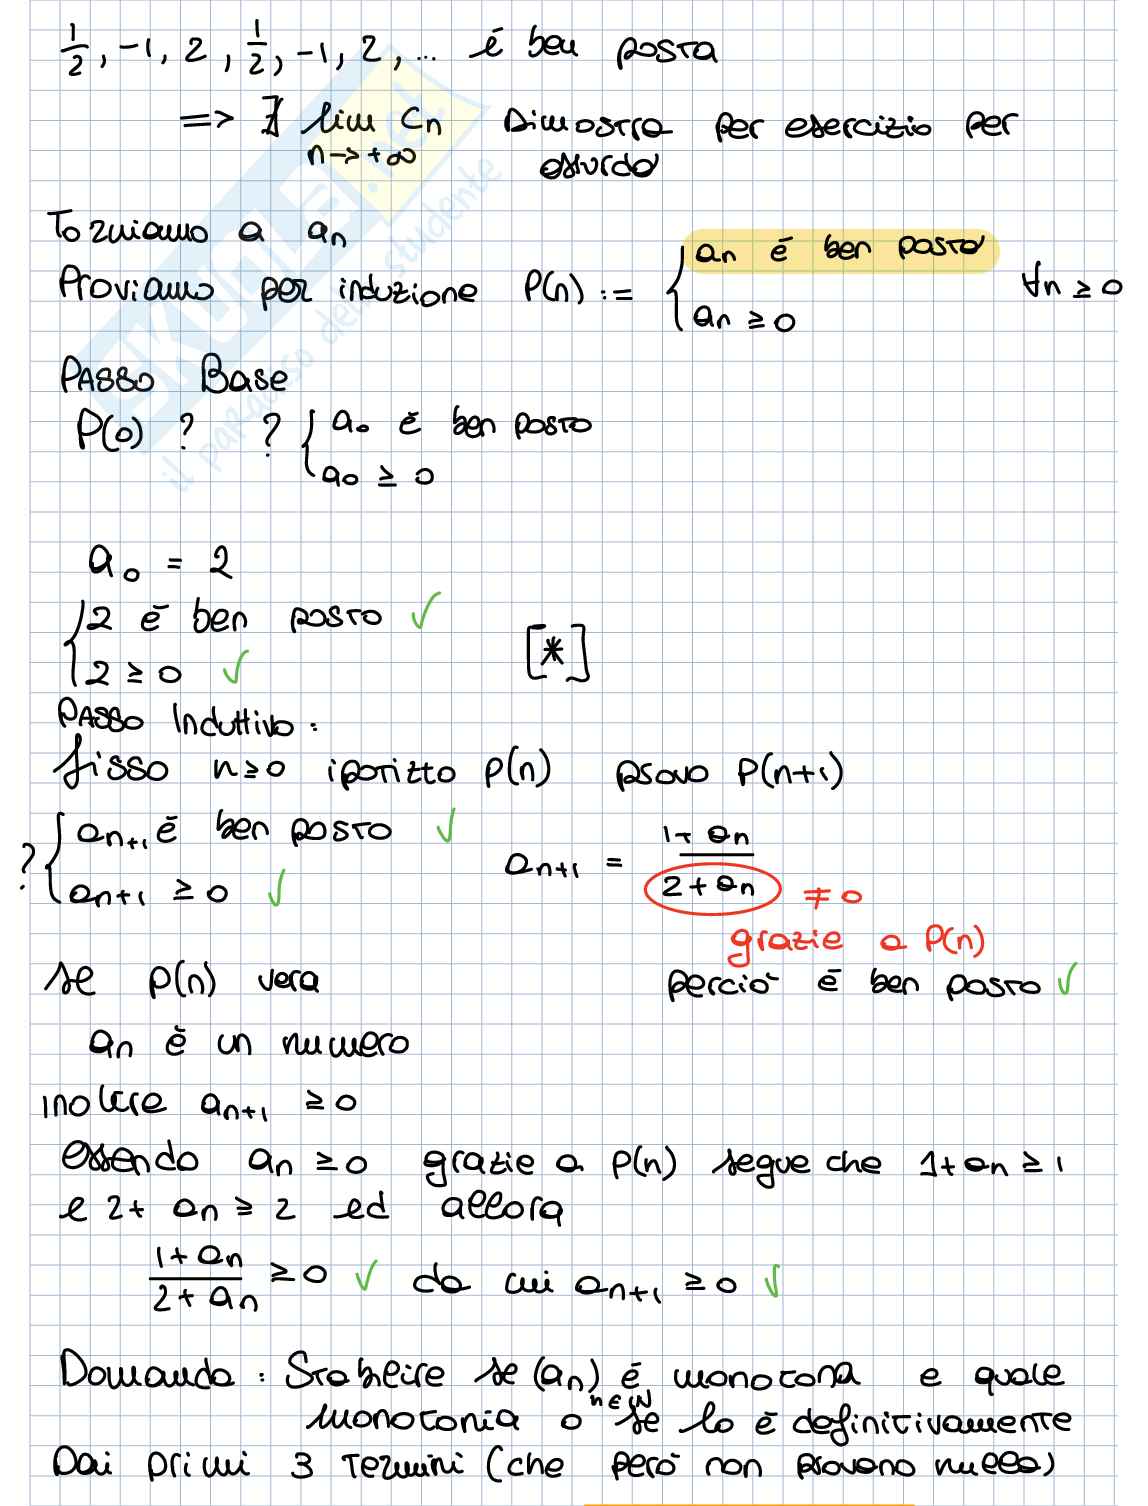 1/2, -1, 2, 1/2, -1, 2, ... è ben posta
=> ∄ lim cn Dimostra per esercizio per
n→+∞ assurdo
Torniamo a an
Proviamo per induzione P(n) := { an è ben posto ∀n ≥ 0
an ≥ 0
Passo Base
P(0) ? ? { a0 è ben posto
a0 ≥ 0
a0 = 2
{ 2 è ben posto ✓
2 ≥ 0 ✓ [*]
Passo Induttivo:
fisso n≥0 ipotizzo P(n) provo P(n+1)
? { an+1 è ben posto ✓
an+1 ≥ 0 ✓
an+1 = (1+an)/(2+an) ≠ 0
grazie a P(n)
se P(n) vera perciò è ben posto ✓
an è un numero
inoltre an+1 ≥ 0
essendo an ≥ 0 grazie a P(n) segue che 1+an ≥ 1
e 2+ an ≥ 2 ed allora
(1+an)/(2+an) ≥ 0 ✓ da cui an+1 ≥ 0 ✓
Domanda: Stabilire se (an) n∈ℕ è monotona e quale
monotonia o se lo è definitivamente
Dai primi 3 termini (che però non provano nulla)
SKUOLA.net
il paradiso dello studente